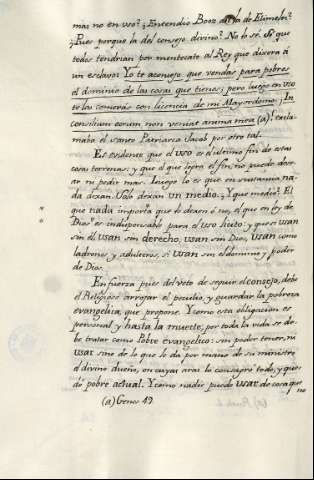 mas no en uso? ¿Entendio Booz de la de Elimelec?
¿Pues porque la del consejo divino? No lo sé. sé que
todos tendrian por mentecato al Rey que dixera á
un esclavo: Yo te aconsejo que vendas para pobres
el dominio de las cosas que tienes; pero luego en uso
te las comerás con licencia de mi Mayordomo. In
consilium eorum non veniat anima mea (a). excla-
maba el santo Patriarca Jacob por otro tal.
Es evidente que el uso es el ultimo fin de estas
cosas terrenas; y que el que logra el fin, no puede dese-
ar ni pedir mas. Luego lo es que en sustancia na-
da dexan. Solo dexan un medio. ¿Y que medio? El
que nada importa que lo dexen ó no, el que en ley de
Dios es indispensable para el uso licito: y que si usan
sin él, usan sin derecho, usan sin Dios, usan como
ladrones y adulteros, si usan sin el dominio y poder
de Dios.
En fuerza pues del voto de seguir el consejo, debe
el Religioso arrojar el peculio, y guardar la pobreza
evangelica que propone. Y como esta obligacion es
personal y hasta la muerte, por toda la vida se de-
be tratar como Pobre evangelico: sin poder tener, ni
usar sino de lo que le da por mano de su ministro
el divino dueño, en cuyas aras lo consagró todo, y que-
dó pobre actual. Y como nadie puede usar de cosa que
no
(a) Genes 49.